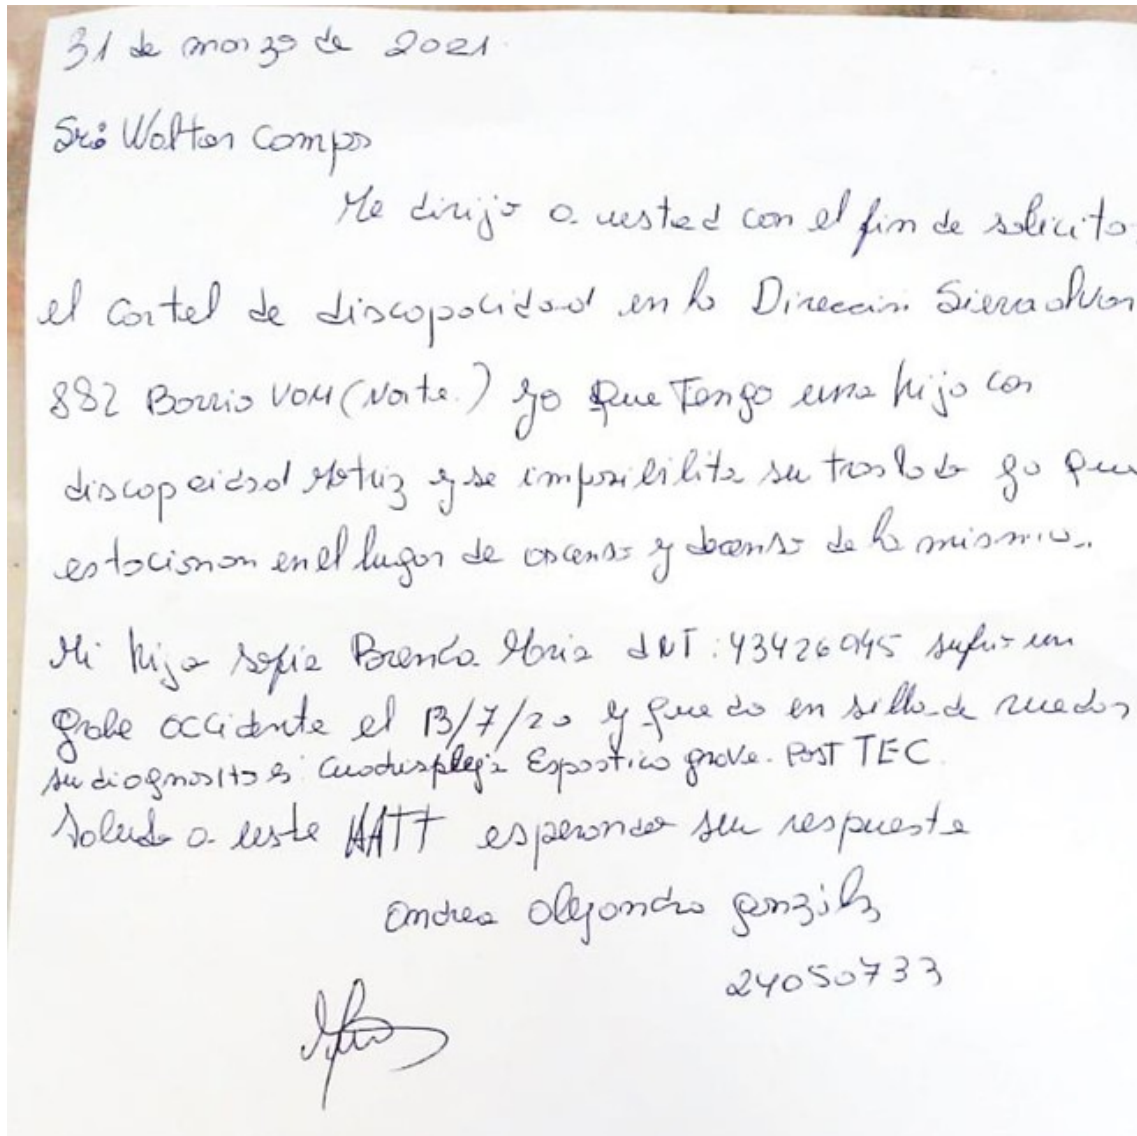 31 de marzo de 2021.
Sr: Walter Campos
Me dirijo a usted con el fin de solicita
el cartel de discapacidad en la Dirección Sierra
882 Barrio VOM (Norte.) ya que Tengo una hija con
discapcidad Motriz y se imposibilita su traslado ya que
estacionan en el lugar de ascenso y decenso de la misma..
Mi hija sofia Brenda Maria dNI: 43426945 sufrio un
grabe accidente el 13/7/20 y quedo en silla de ruedas
su diagnostto es: Cuadusplejia Espastico grave. POST TEC.
Saludo a uste AATT esperando su respuesta
andrea alejandra gonzález
24050733